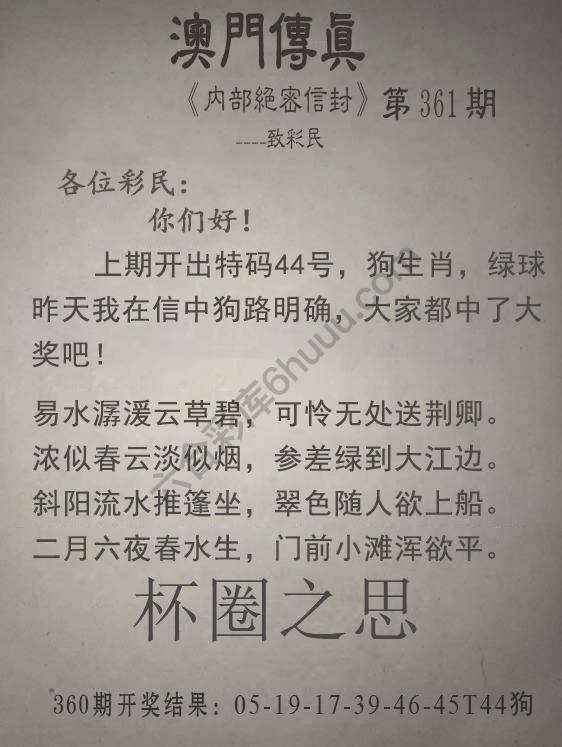 澳門傳眞
《内部絕密信封》第361期
----致彩民
各位彩民：
你们好！
上期开出特码44号，狗生肖，绿球
昨天我在信中狗路明确，大家都中了大
奖吧！
易水潺湲云草碧，可怜无处送荆卿。
浓似春云淡似烟，参差绿到大江边。
斜阳流水推篷坐，翠色随人欲上船。
二月六夜春水生，门前小滩浑欲平。
杯圈之思
360期开奖结果：05-19-17-39-46-45T44狗
六合彩库6huuu.com